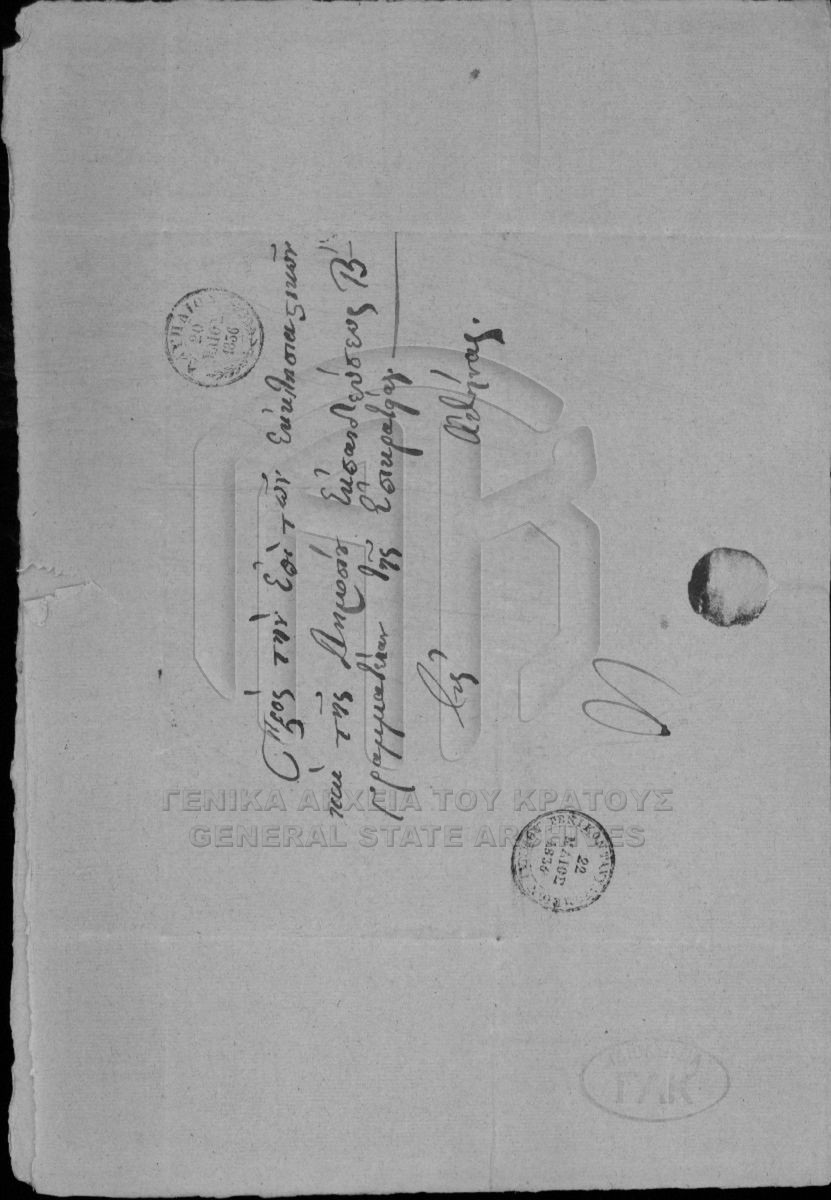 Πρὸς τὴν ἐπὶ τῶν Ἐκκλησιαστικῶν
καὶ τῆς Δημοσίυ Ἐκπαιδεύσεως Β῀
Γραμματείαν τῆς Ἐπικρατείας
Εἰς Ἀθήνας.
20
ΜΑΙΟΥ
1836
22
ΜΑΙΟΥ
1836
ΓΕΝΙΚΑ ΑΡΧΕΙΑ ΤΟΥ ΚΡΑΤΟΥΣ
GENERAL STATE ARCHIVES
ΓΑΚ